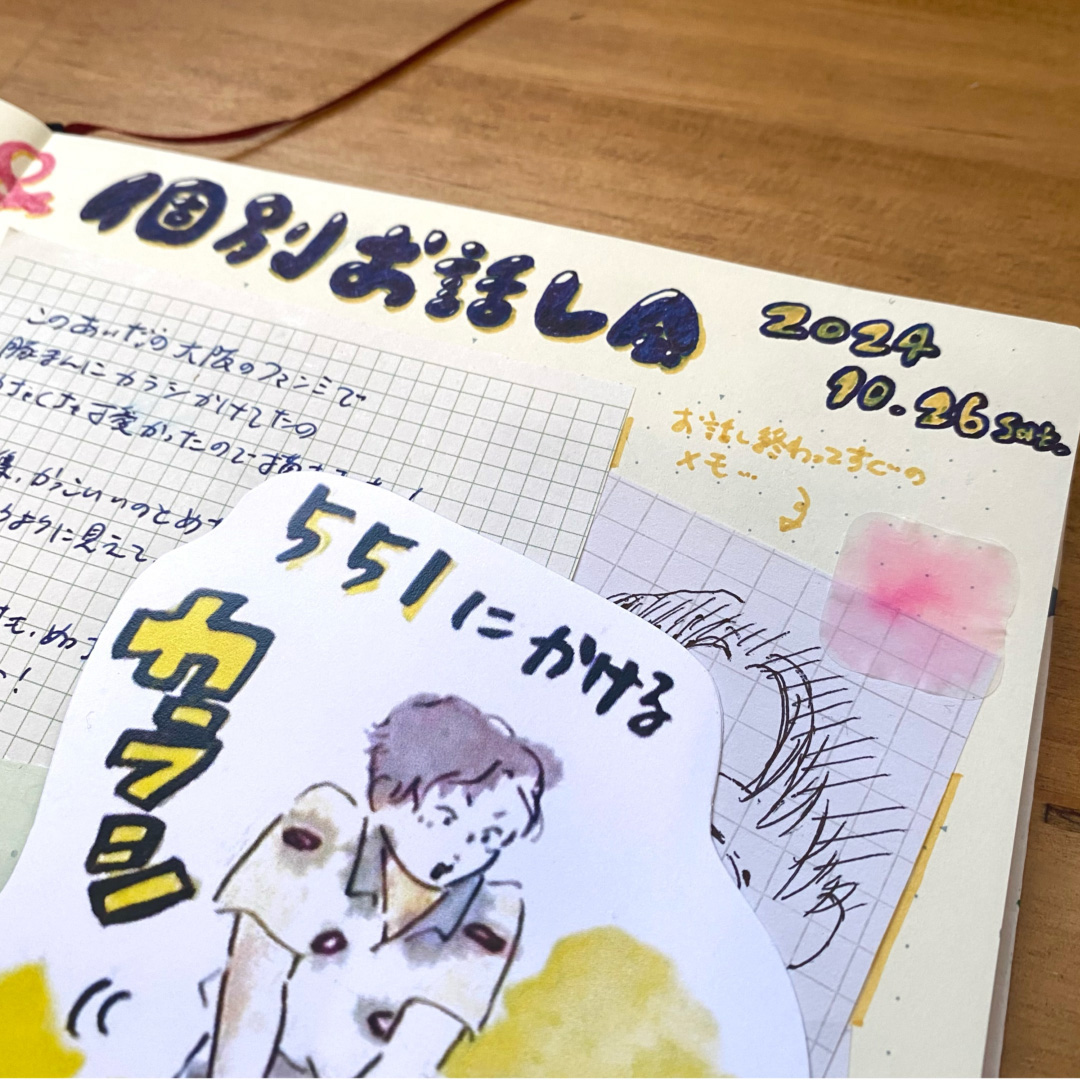 個別お話し会
2024
10.26 Sat.
お話し終わってすぐの
メモ…
このあいだの大阪のファンミで
豚まんにカラシかけてたの
かったので
かっこいいのとめ
ように見えて
551にかける
カラシ